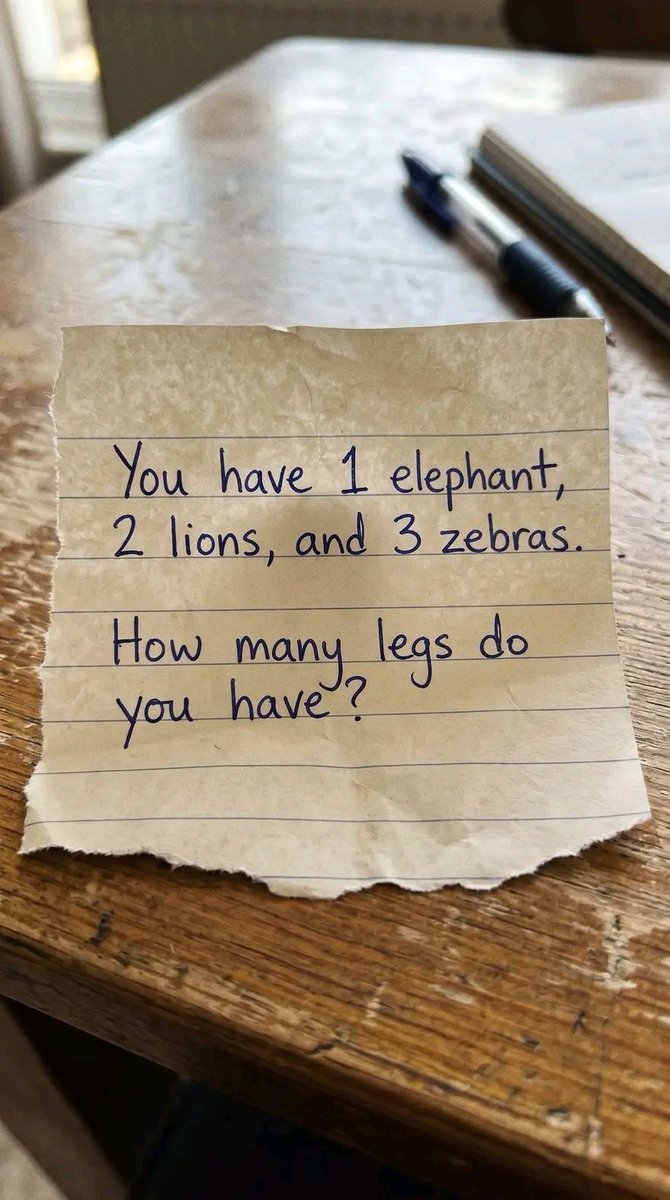 You have 1 elephant,
2 lions, and 3 zebras.
How many legs do
you have?